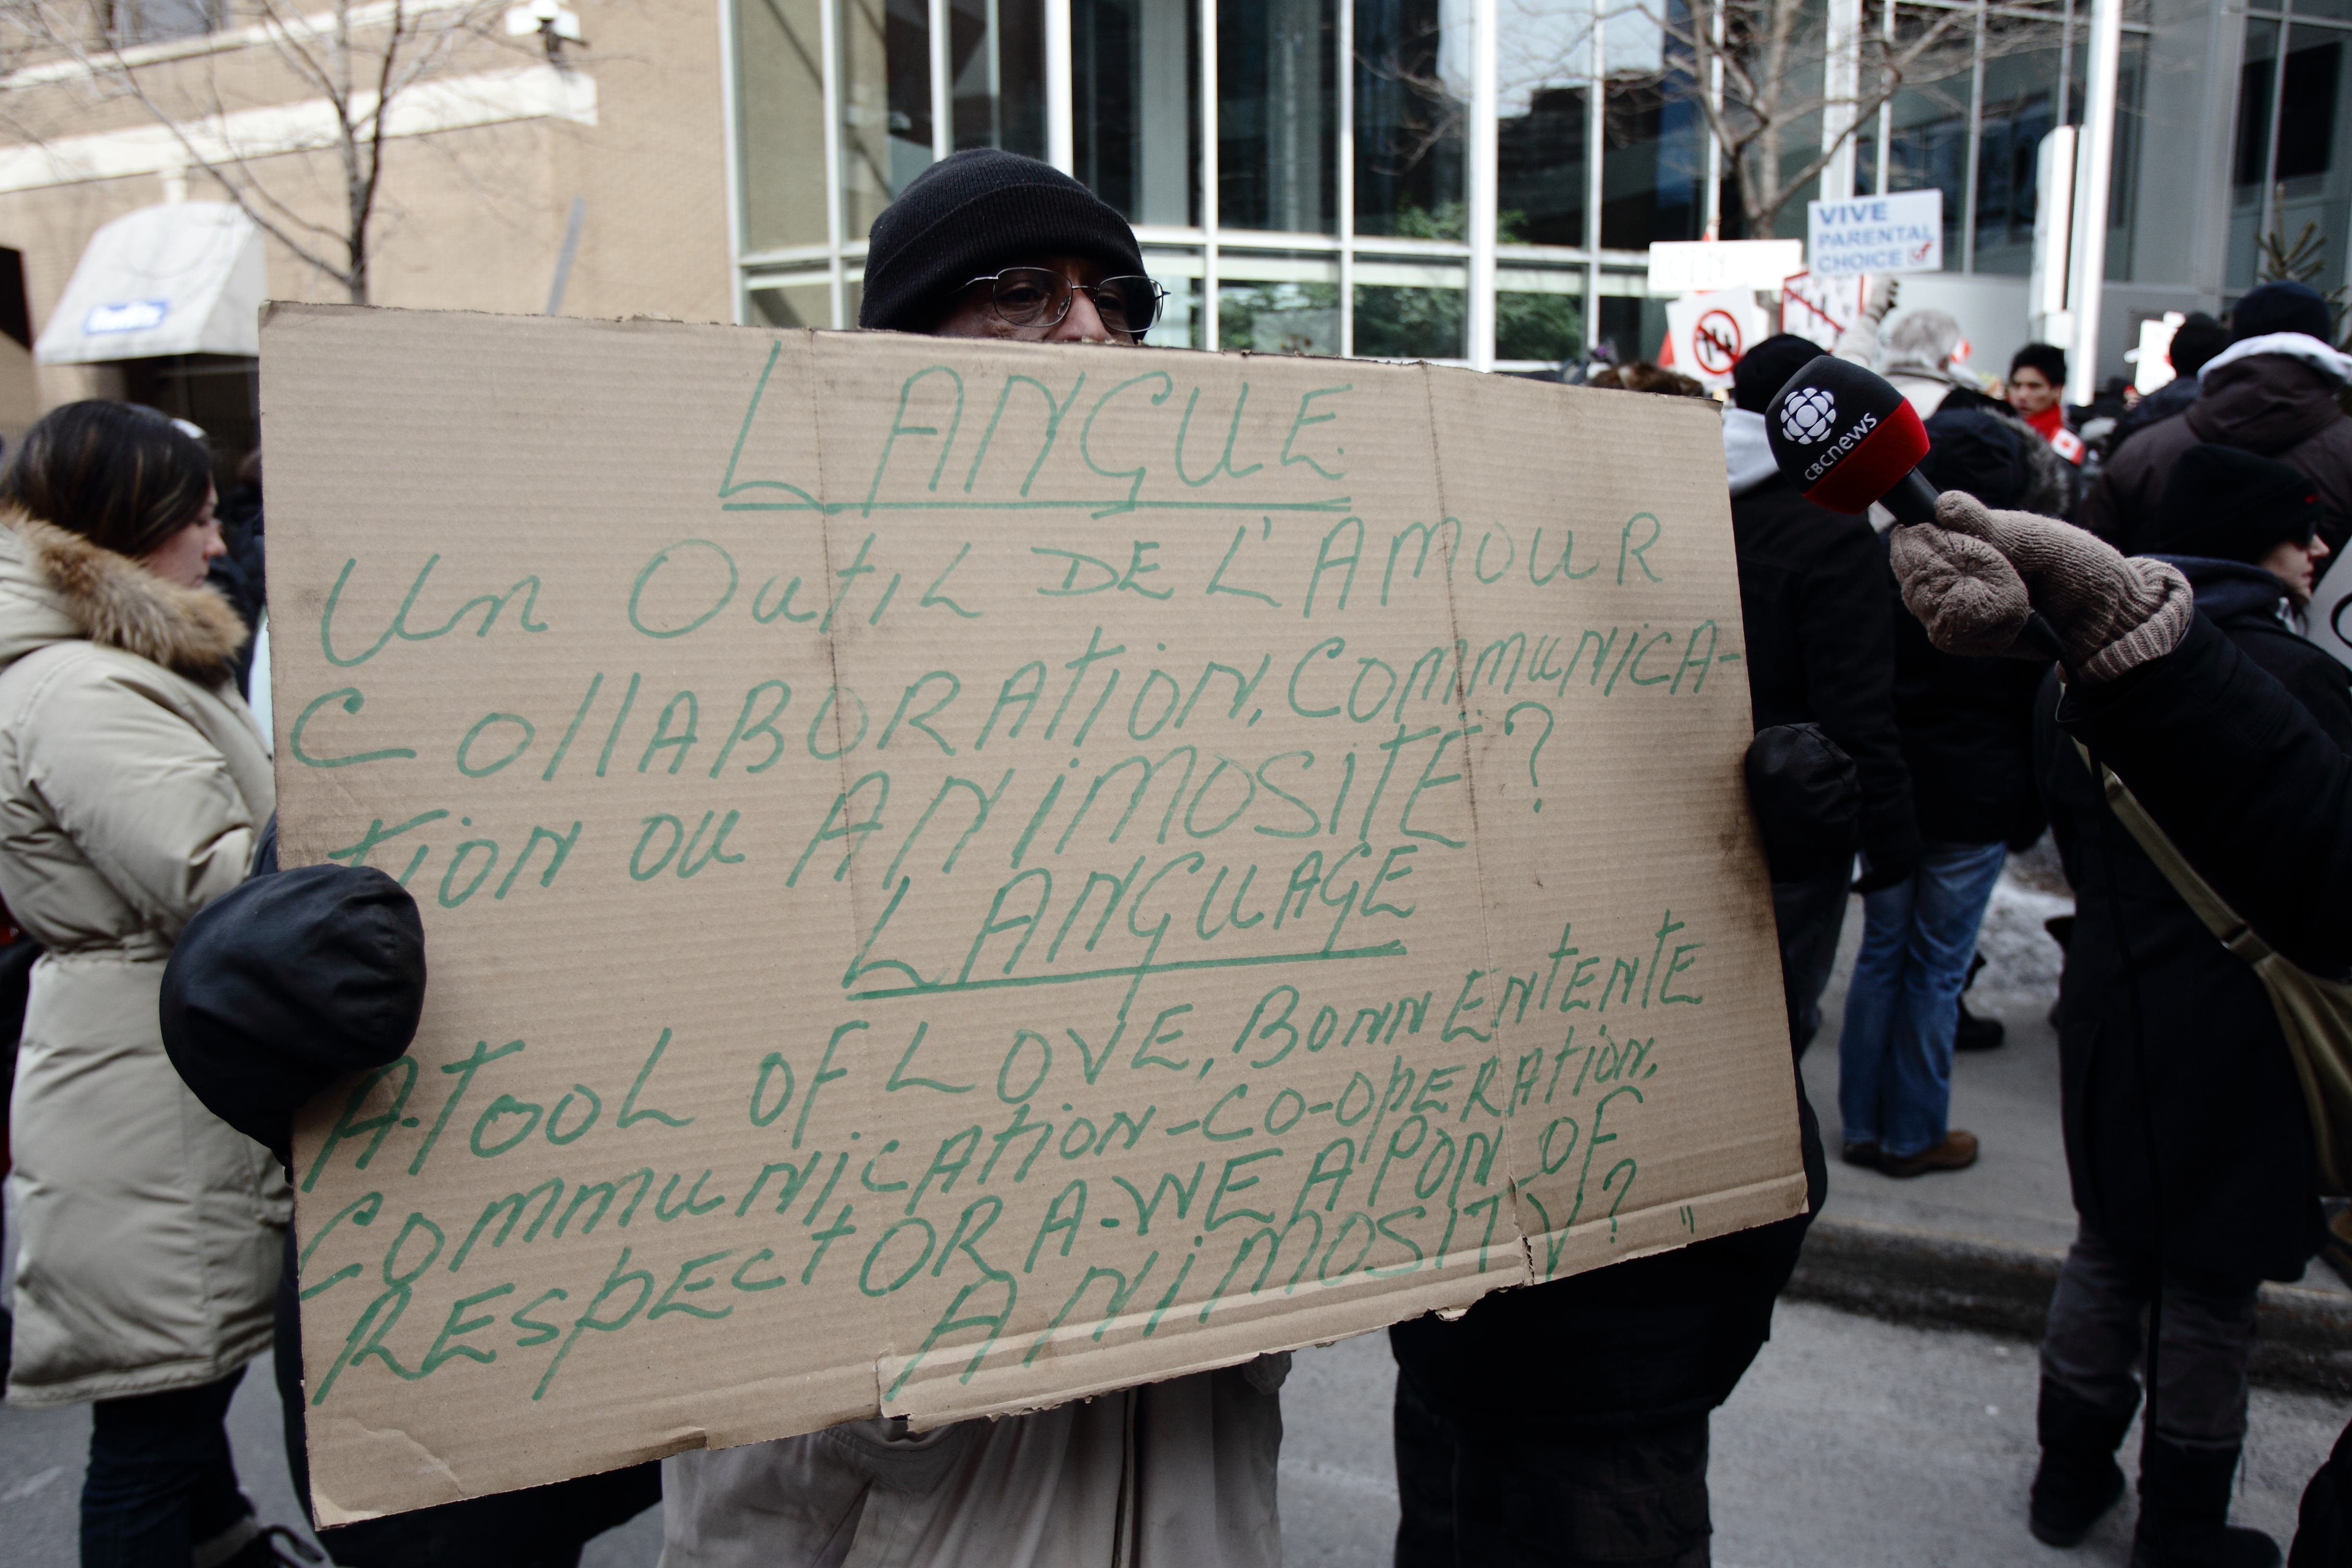 LANGUE
Un Outil DE L'AMOUR
CollABORAtion, COMMUNICA-
tion ou ANIMOSItÉ?
LANGUAGE
A-TOOL OF LOVE, BONN ENTENTE
COMMUNICAtion-CO-OPERAtion.
RESPECT OR A-WEAPON OF
ANIMOSITY? "
VIVE
PARENTAL
CHOICE
CBCnews